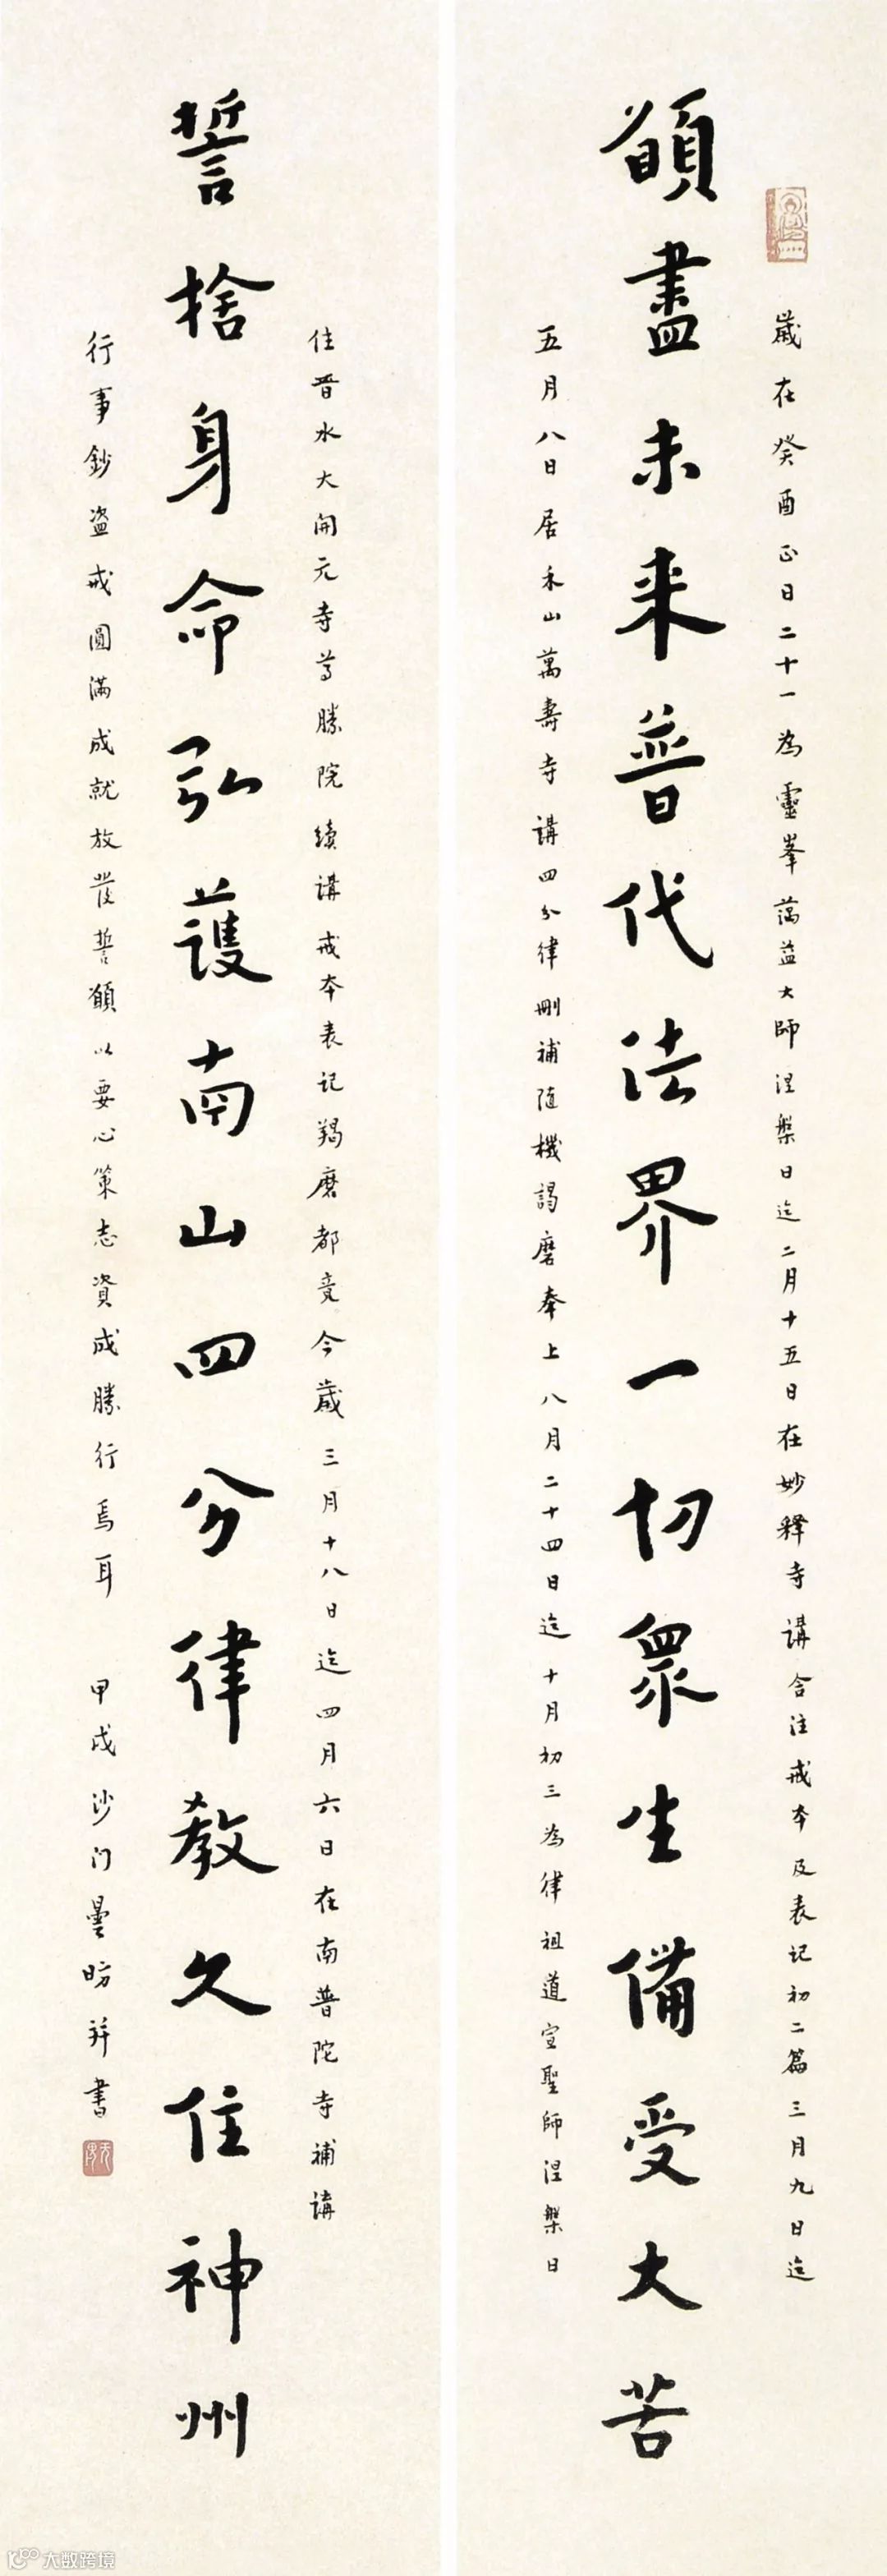 歲在癸酉正日二十一為靈峯蕅益大師涅槃日迄二月十五日在妙釋寺講含注戒本及表記初二篇三月九日迄
願盡未来普代法界一切眾生備受大苦
五月八日居禾山萬壽寺講四分律刪補隨機羯磨奉上八月二十四日迄十月初三為律祖道宣聖師涅槃日
住晋水大開元寺尊勝院續講戒本表記羯磨都竟今歲三月十八日迄四月六日在南普陀寺補講
誓捨身命弘護南山四分律教久住神州
行事鈔盜戒圓滿成就放發誓願以要心策志資成勝行焉耳 甲戌沙门曇昉并書
大数跨境